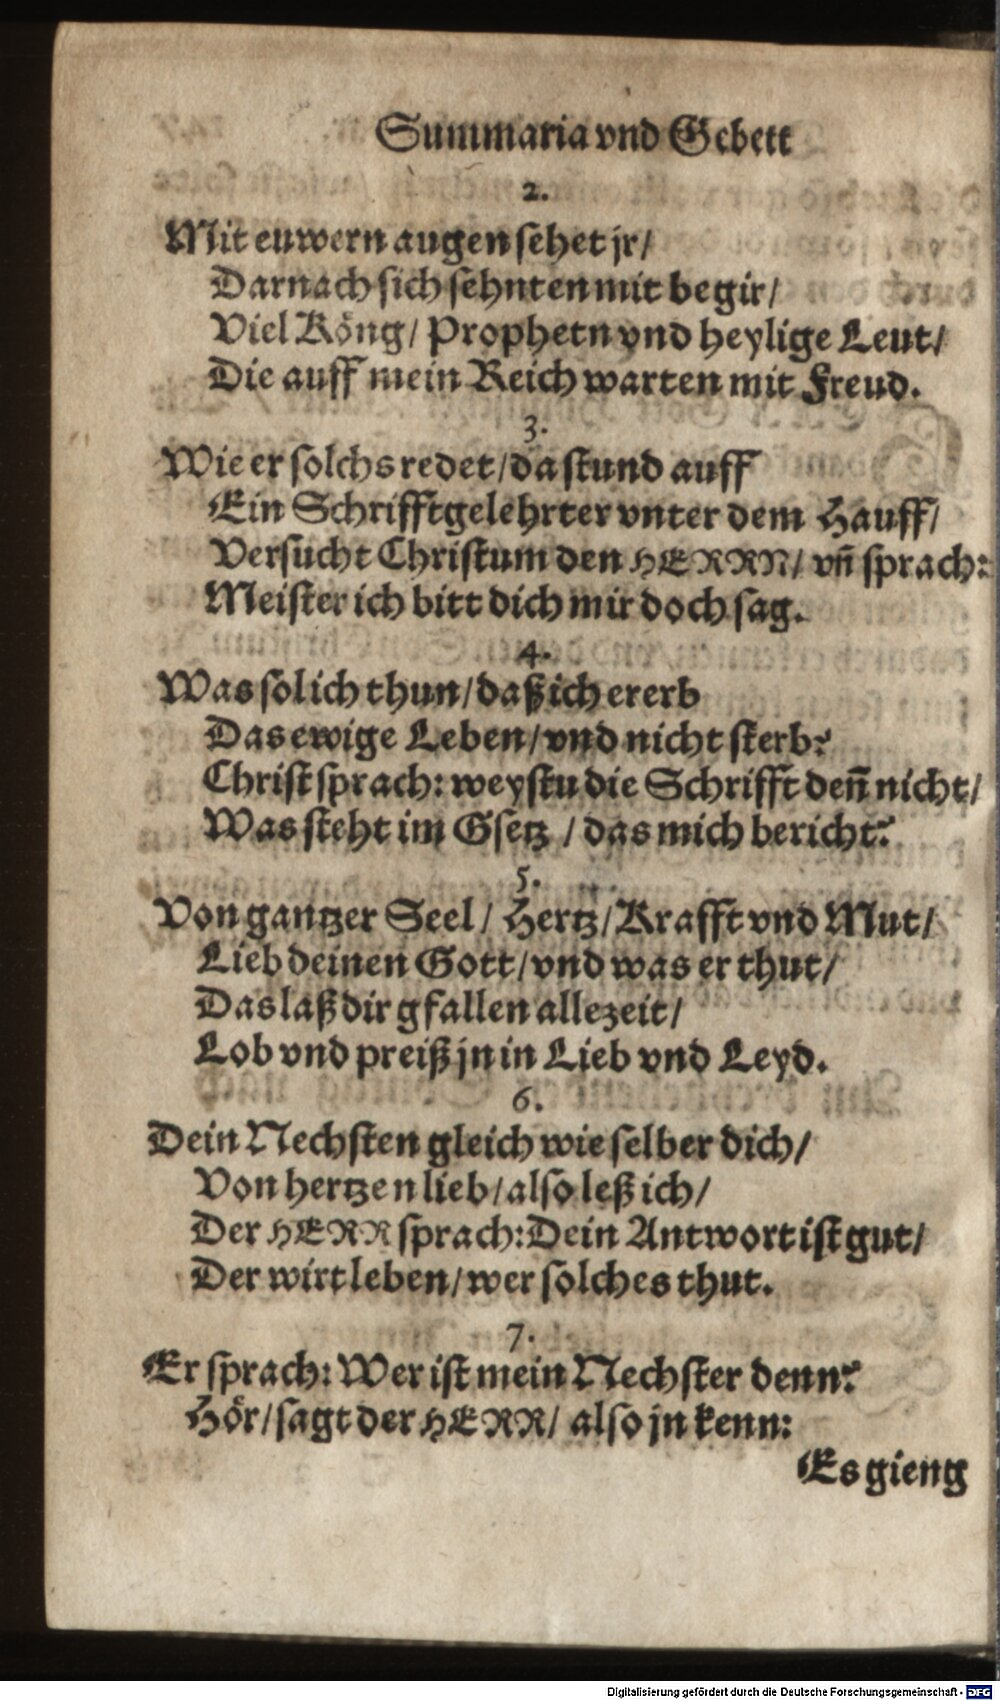 Summaria vnd Gebett
2.
Mit euwern augen sehet jr/
Darnach sich sehnten mit begir/
Viel Köng/ Prophetn vnd heylige Leut/
Die auff mein Reich warten mit Freud.
3.
Wie er solchs redet/ da stund auff
Ein Schrifftgelehrter vnter dem Hauff/
Versucht Christum den HERRN/ vñ sprach:
Meister ich bitt dich mir doch sag.
4.
Was sol ich thun/ daß ich ererb
Das ewige Leben/ vnd nicht sterb?
Christ sprach: weystu die Schrifft deñ nicht/
Was steht im Gsetz / das mich bericht?
5.
Von gantzer Seel/ Hertz/ Krafft vnd Mut/
Lieb deinen Gott/ vnd was er thut/
Das laß dir gfallen allezeit/
Lob vnd preiß jn in Lieb vnd Leyd.
6.
Dein Nechsten gleich wie selber dich/
Von hertzen lieb/ also leß ich/
Der HERR sprach: Dein Antwort ist gut/
Der wirt leben/ wer solches thut.
7.
Er sprach: Wer ist mein Nechster denn?
Hör/ sagt der HERR/ also jn kenn:
Es gieng
Digitalisierung gefördert durch die Deutsche Forschungsgemeinschaft - DFG